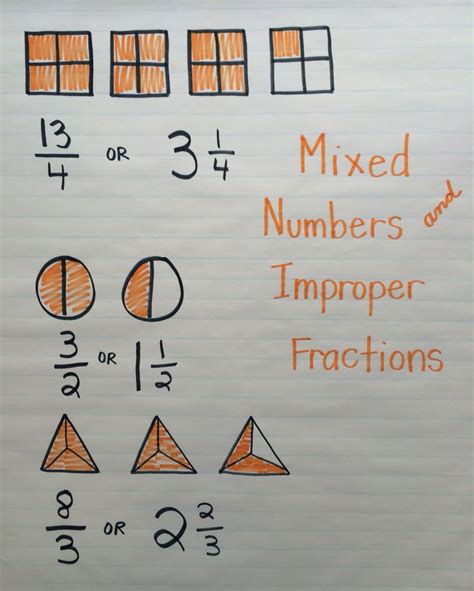 13/4 OR 3 1/4
Mixed
Numbers and
Improper
Fractions
3/2 OR 1 1/2
8/3 OR 2 2/3